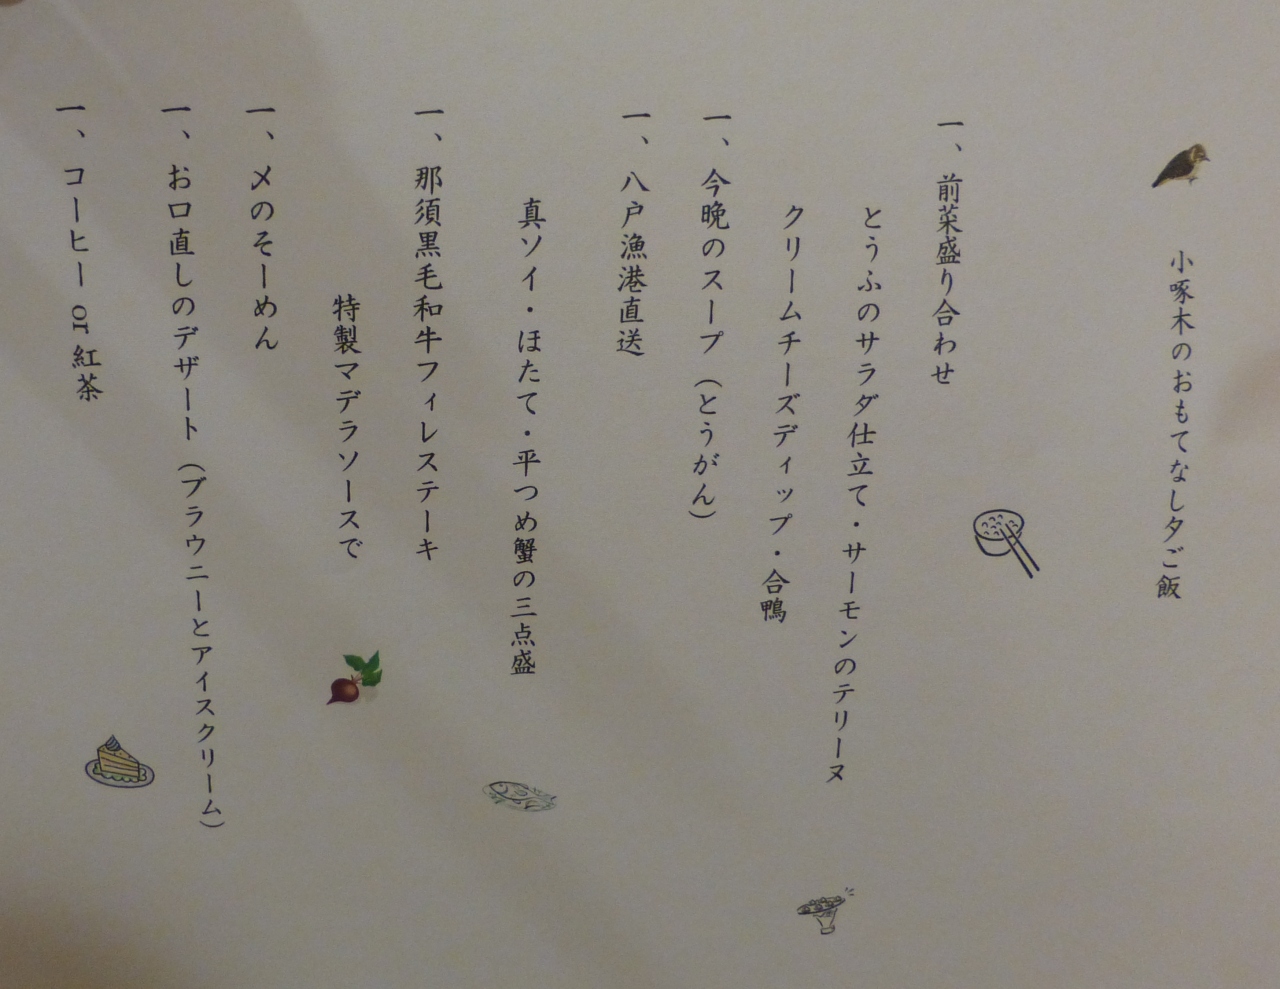 小啄木のおもてなし夕ご飯
一、前菜盛り合わせ
とうふのサラダ仕立て・サーモンのテリーヌ
クリームチーズディップ・合鴨
一、今晩のスープ（とうがん）
一、八戸漁港直送
真ソイ・ほたて・平つめ蟹の三点盛
一、那須黒毛和牛フィレステーキ
特製マデラソースで
一、〆のそーめん
一、お口直しのデザート（ブラウニーとアイスクリーム）
一、コーヒー or 紅茶